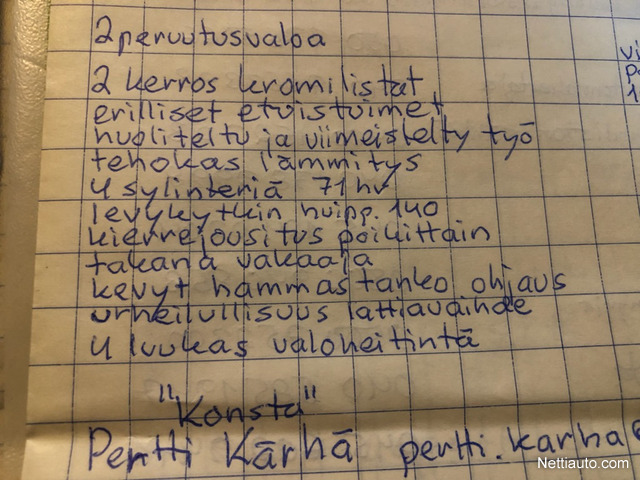 2 peruutusvaloa
2 kerros kromilistat
erilliset etuistuimet
huoliteltu ja viimeistelty työ
tehokas lämmitys
4 sylinteriä 71 hv
levykytkin huipp. 140
kierrejousitus poikittain
takana vakaaja
kevyt hammastanko ohjaus
urheilullisuus lattiavaihde
4 luukas valoheitintä
"Konsta"
Pertti Kärhä pertti.karha@
vi
1
Nettiauto.com